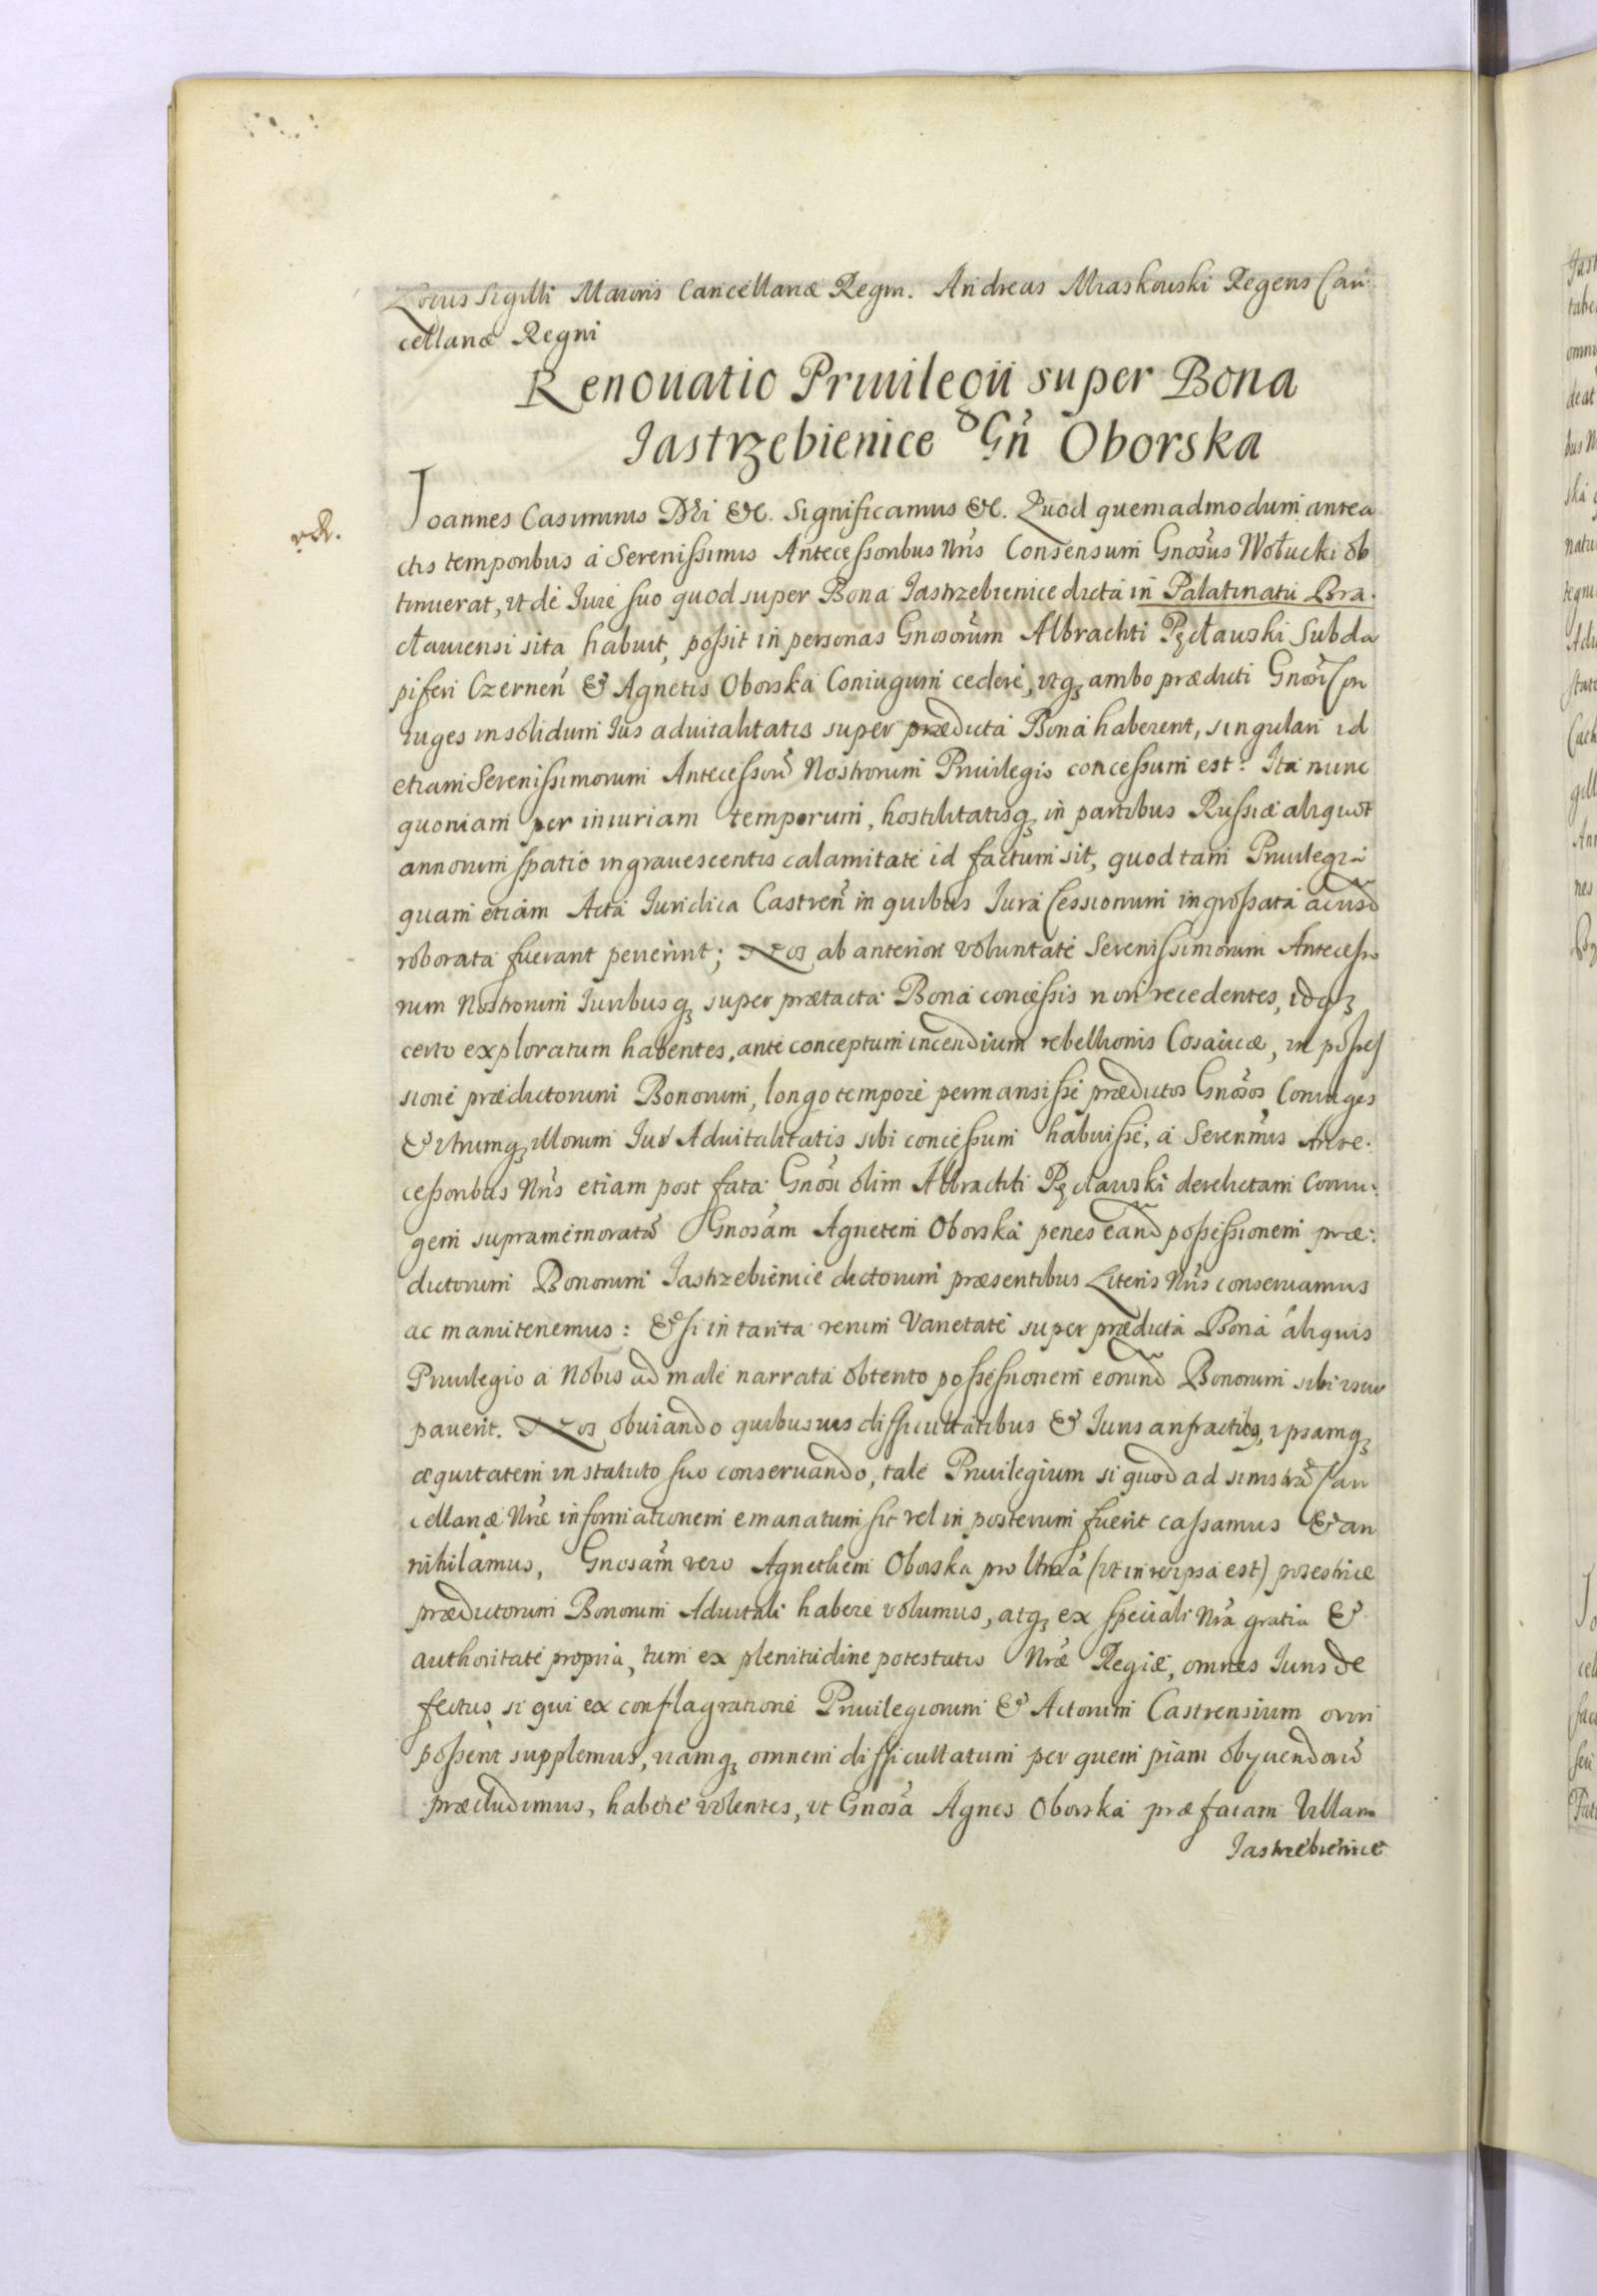 Locus Sigilli Maioris Cancellariæ Regni. Andreas Miaskowski Regens Can
cellariæ Regni
Renouatio Priuilegii super Bona
Jastrzebienice Gñ Oborska
vR.
Joannes Casimirus Dei &c. Significamus &c. Quod quemadmodum antea
ctis temporibus à Serenissimis Antecessoribus Nr̃is Consensum Gnosus Wołucki ob
tinuerat, vt de Iure suo quod super Bona Jastrzebienice dicta in Palatinatu Bra.
cłauiensi sita habuit, possit in personas Gnosorum Albrachti Pęcławski Subda
piferi Czerneñ & Agnetis Oborska Coniugum cedere, vtqꝫ ambo prædicti Gnosi Con
iuges in solidum Ius aduitalitatis super prædicta Bona haberent, singulari id
etiam Serenissimorum Antecessorũ Nostrorum Priuilegio concessum est: Ita nunc
quoniam per iniuriam temporum, hostilitatisqꝫ in partibus Russiæ aliquot
annorum spatio ingrauescentis calamitate id factum sit, quod tam Priuilegia
quam etiam Acta Iuridica Castreñ in quibus Iura Cessionum ingrossata
roborata fuerant perierint; Nos ab anteriori voluntate Serenissimorum Antecesso
rum Nostrorum Iuribusqꝫ super prætacta Bona concessis non recedentes, idqꝫ
certo exploratum habentes, ante conceptum incendium rebellionis Cosaicæ, in posses
sione prædictorum Bonorum, longo tempore permansisse prædictos Gnosos Coniuges
& vtrumqꝫ illorum Ius Aduitalitatis sibi concessum habuisse, à Serenm̃is Ante.
cessoribus Nr̃is etiam post fata Gnosi olim Albrachti Pęcławski derelictam Coniu.
gem supramemoratã Gnosam Agnetem Oborska penes eand possessionem præ.
dictorum Bonorum Jastrzebienice dictorum præsentibus Literis Nr̃is conseruamus
ac manutenemus: & si in tanta rerum Varietate super prædicta Bona aliquis
Priuilegio à Nobis ad male narrata obtento possessionem eorund Bonorum sibi vsur
pauerit. Nos obuiando quibusuis difficultatibus & Iuris anfractibꝫ, ipsamqꝫ
æquitatem in statuto suo conseruando, tale Priuilegium si quod ad sinistrã Can
cellariæ Nr̃æ informationem emanatum sit vel in posterum fuerit cassamus & an
nihilamus, Gnosam vero Agnethem Oborska pro (vt in re ipsa est)
prædictorum Bonorum Aduitali habere volumus, atqꝫ ex speciali Nr̃a gratia &
authoritate propria, tum ex plenitudine potestatis Nr̃æ Regiæ, omnes Iuris de
fectus si qui ex conflagratione Priuilegiorum & Actorum Castrensium oriri
possent supplemus, viamqꝫ omnem difficultatum per quem piam obyuendorũ
præcludimus, habere volentes, vt Gnosa Agnes Oborska præfatam Villam
Jastrzebienice